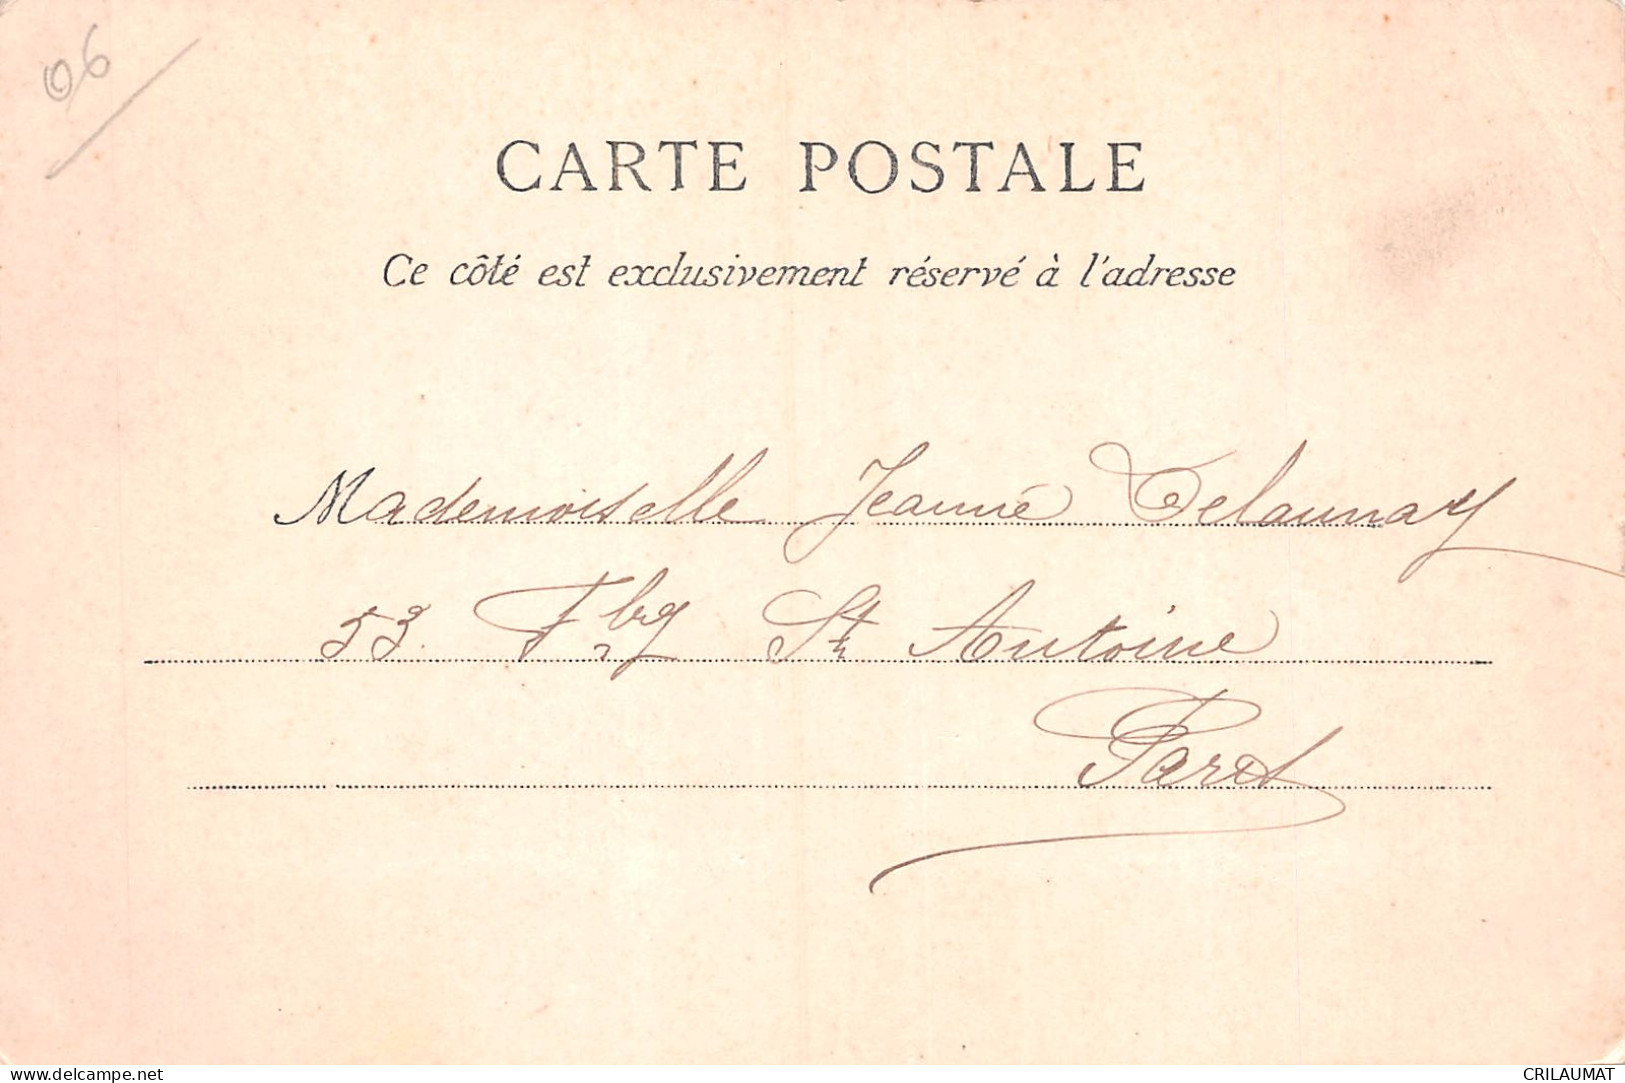 06
CARTE POSTALE
Ce côté est exclusivement réservé à l'adresse
Mademoiselle Jeanne Delaunay
53. Fbg St Antoine
Paris
www.delcampe.net
CRILAUMAT